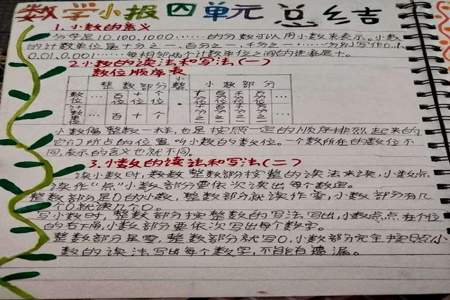 数学小报四单元总结
1.小数的意义
分母是10,100,1000……的分数可以用小数来表示。小数
的计数单位是十分之一、百分之一、千分之一……分别写作0.1、
0.01,0.001……每相邻两个计数单位之间的进率是十。
2.小数的读法和写法(一)
数位顺序表
整数部分 小数部分
数位 … 百位 十位 个位 · 十分位 百分位 千分位 …
… 百 十 个
小数偏整数一样,也是按照一定的顺序排列起来的
它们所占的位置叫小数的数位。一个数所在的数位不
同,表示的意义也就不同。
3.小数的读法和写法(二)
读小数时,整数部分按整的读法来读,小数点
读作“点”小数部分要依次读出每个数。
整数部分是0的小数,整数部分就读作零,小数部分有几
个0,就读几个0。
写小数时,整数部分按整数的写法写出,小数点点在个位
的右下角,小数部分要依次写出每个数字。
整数部分是零,整数部分就写0,小数部分完全按照小
数的读法,写出每个数字,不能有遗漏。